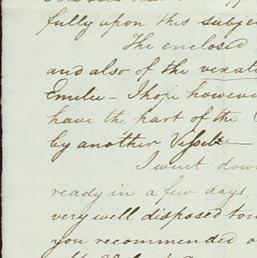 fully upon this subje
The enclosed
and also of the vexat
Emilie - I hope however
have the part of the
by another Vessel -
I went dow
ready in a few days,
very well disposed tow
you recommended